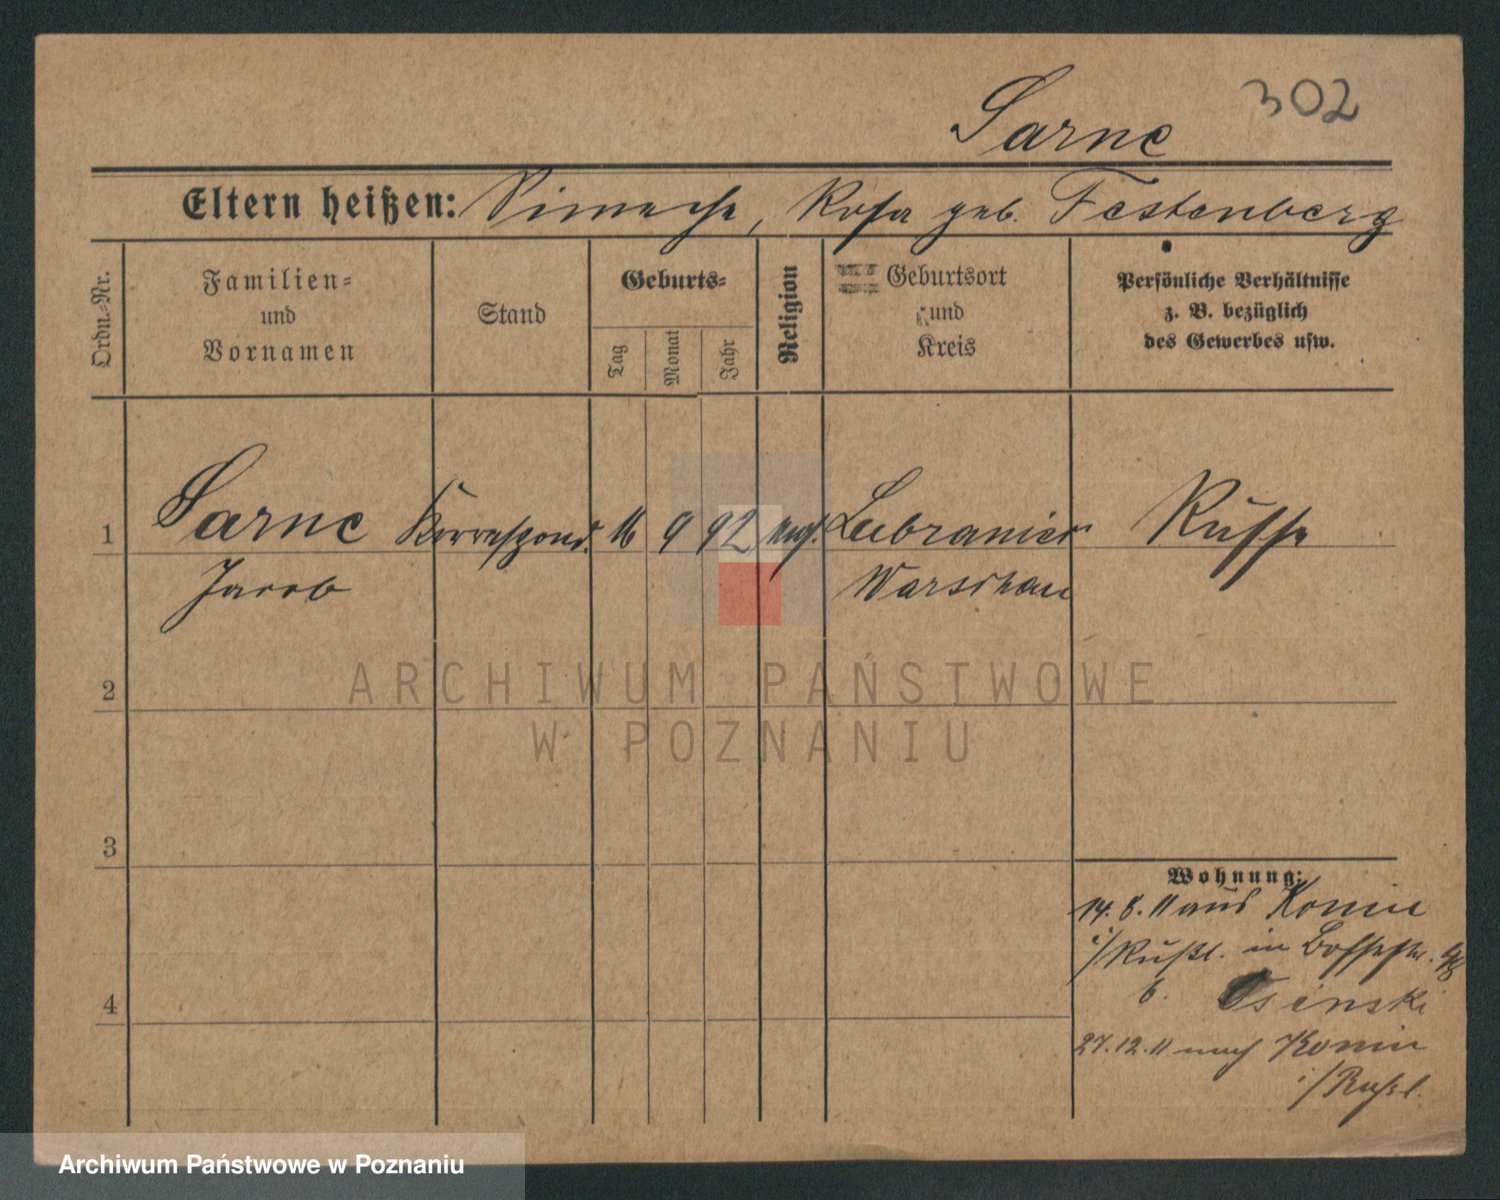 302
Sarne
Eltern heißen: Simche, Rosa geb. Festenberg
Ordn.-Nr.
Familien-
und
Vornamen
Stand
Geburts-
Tag
Monat
Jahr
Religion
Geburtsort
und
Kreis
Persönliche Verhältnisse
z. B. bezüglich
des Gewerbes usw.
1 Sarne Korrespond. 16 9 92 mos. Lubraniec Russe
Jacob Warschau
ARCHIWUM PAŃSTWOWE
W POZNANIU
2
3
4
Wohnung:
14. 8. 11 aus Konin
i/Rußl. in
b. Osinski
27. 12. 11 nach Konin
i/Rußl.
Archiwum Państwowe w Poznaniu